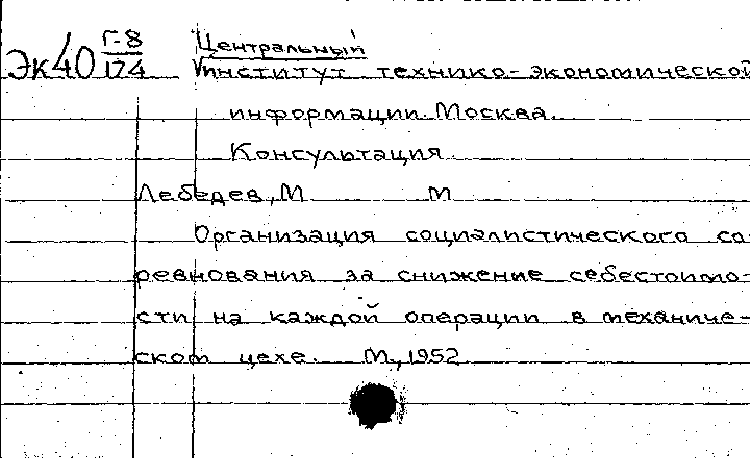 Эк40 Г-8/174
Центральный
институт технико-экономической
информации. Москва.
Консультация
Лебедев, М М
Организация социалистического со-
ревнования за снижение себестоимо-
сти на каждой операции в механиче-
ском цехе. М., 1952